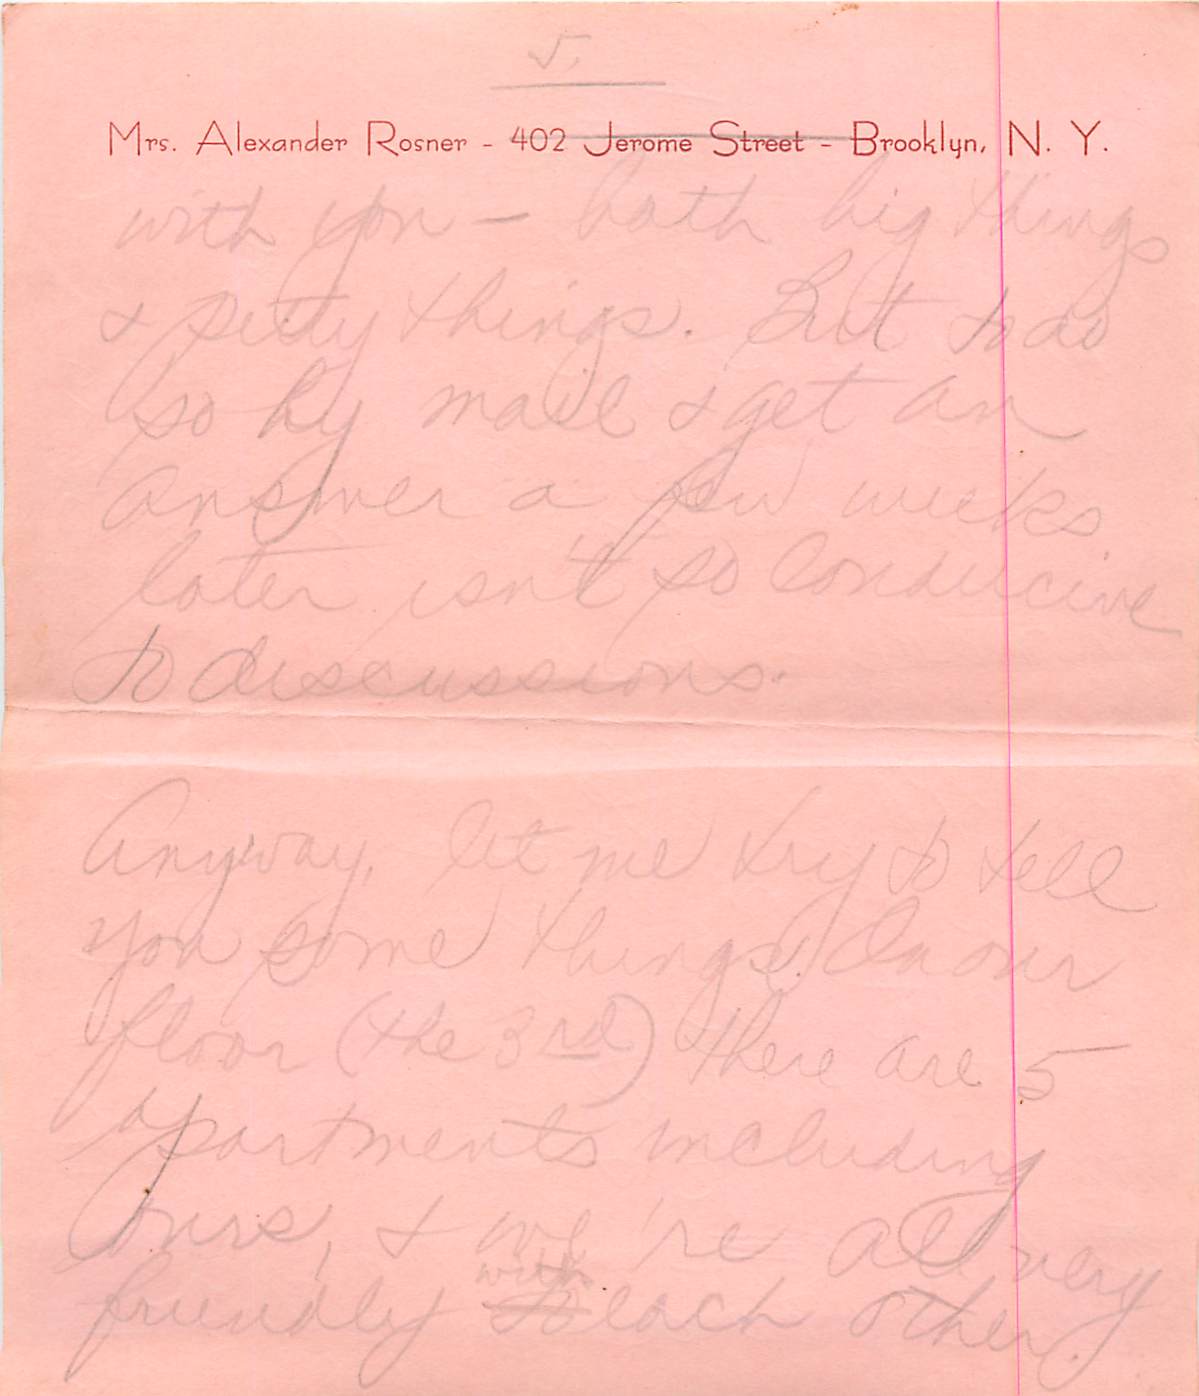 5.
Mrs. Alexander Rosner - 402 Jerome Street - Brooklyn, N. Y.
with you - both big things
& petty things. But to do
so by mail & get an
answer a few weeks
later isn't so conducive
to discussions.
Anyway, let me try to tell
you some things. On our
floor (the 3rd) there are 5
apartments including
ours, & we're all very
friendly to with each other.